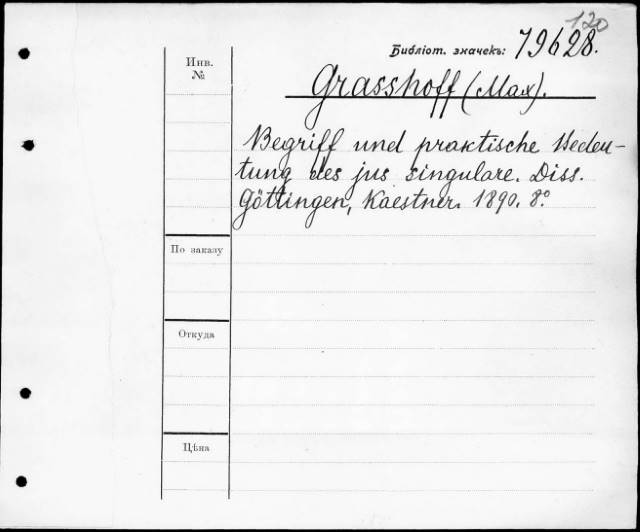 120
Библіот. значекъ: 79628.
Инв.
№
Grasshoff (Max).
Begriff und praktische Bedeu-
tung des jus singulare. Diss.
Göttingen, Kaestner. 1890. 8°
По заказу
Откуда
Цѣна